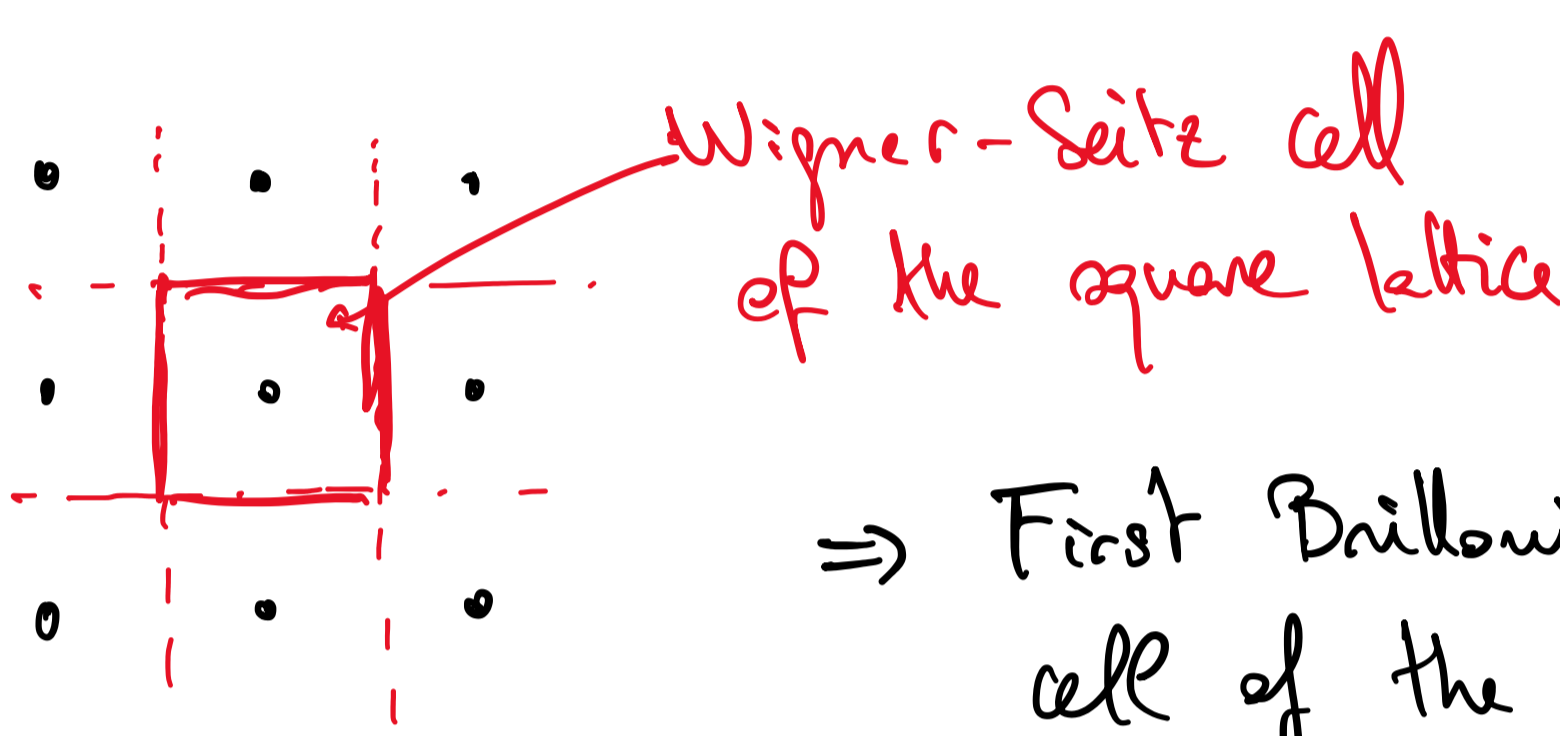 Wigner-Seitz cell
of the square lattice
⇒ First Brilloui
cell of the